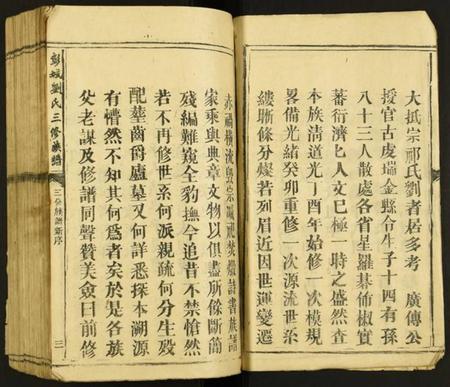 大抵宗祁氏劉者居多考　廣傳公
授官古虔瑞金縣令生子十四有孫
八十三人散處各省星羅碁佈椒實
蕃衍濟匕人文巳極一時之盛然查
本族清道光丁酉年始修一次模規
畧備光緒癸卯重修一次源流世系
縷晰條分燦若列眉近因世運變遷
赤禍橫流
家乘與典章文物以俱盡所餘斷簡
殘編難窺全豹撫今追昔不禁愴然
若不再修世系何派親疏何分生歿
配塟齒爵廬墓又何詳悉探本溯源
有懵然不知其何爲者矣於是各族
父老謀及修譜同聲贊美僉曰前修
彭城劉氏三修族譜
三修族譜新序
三